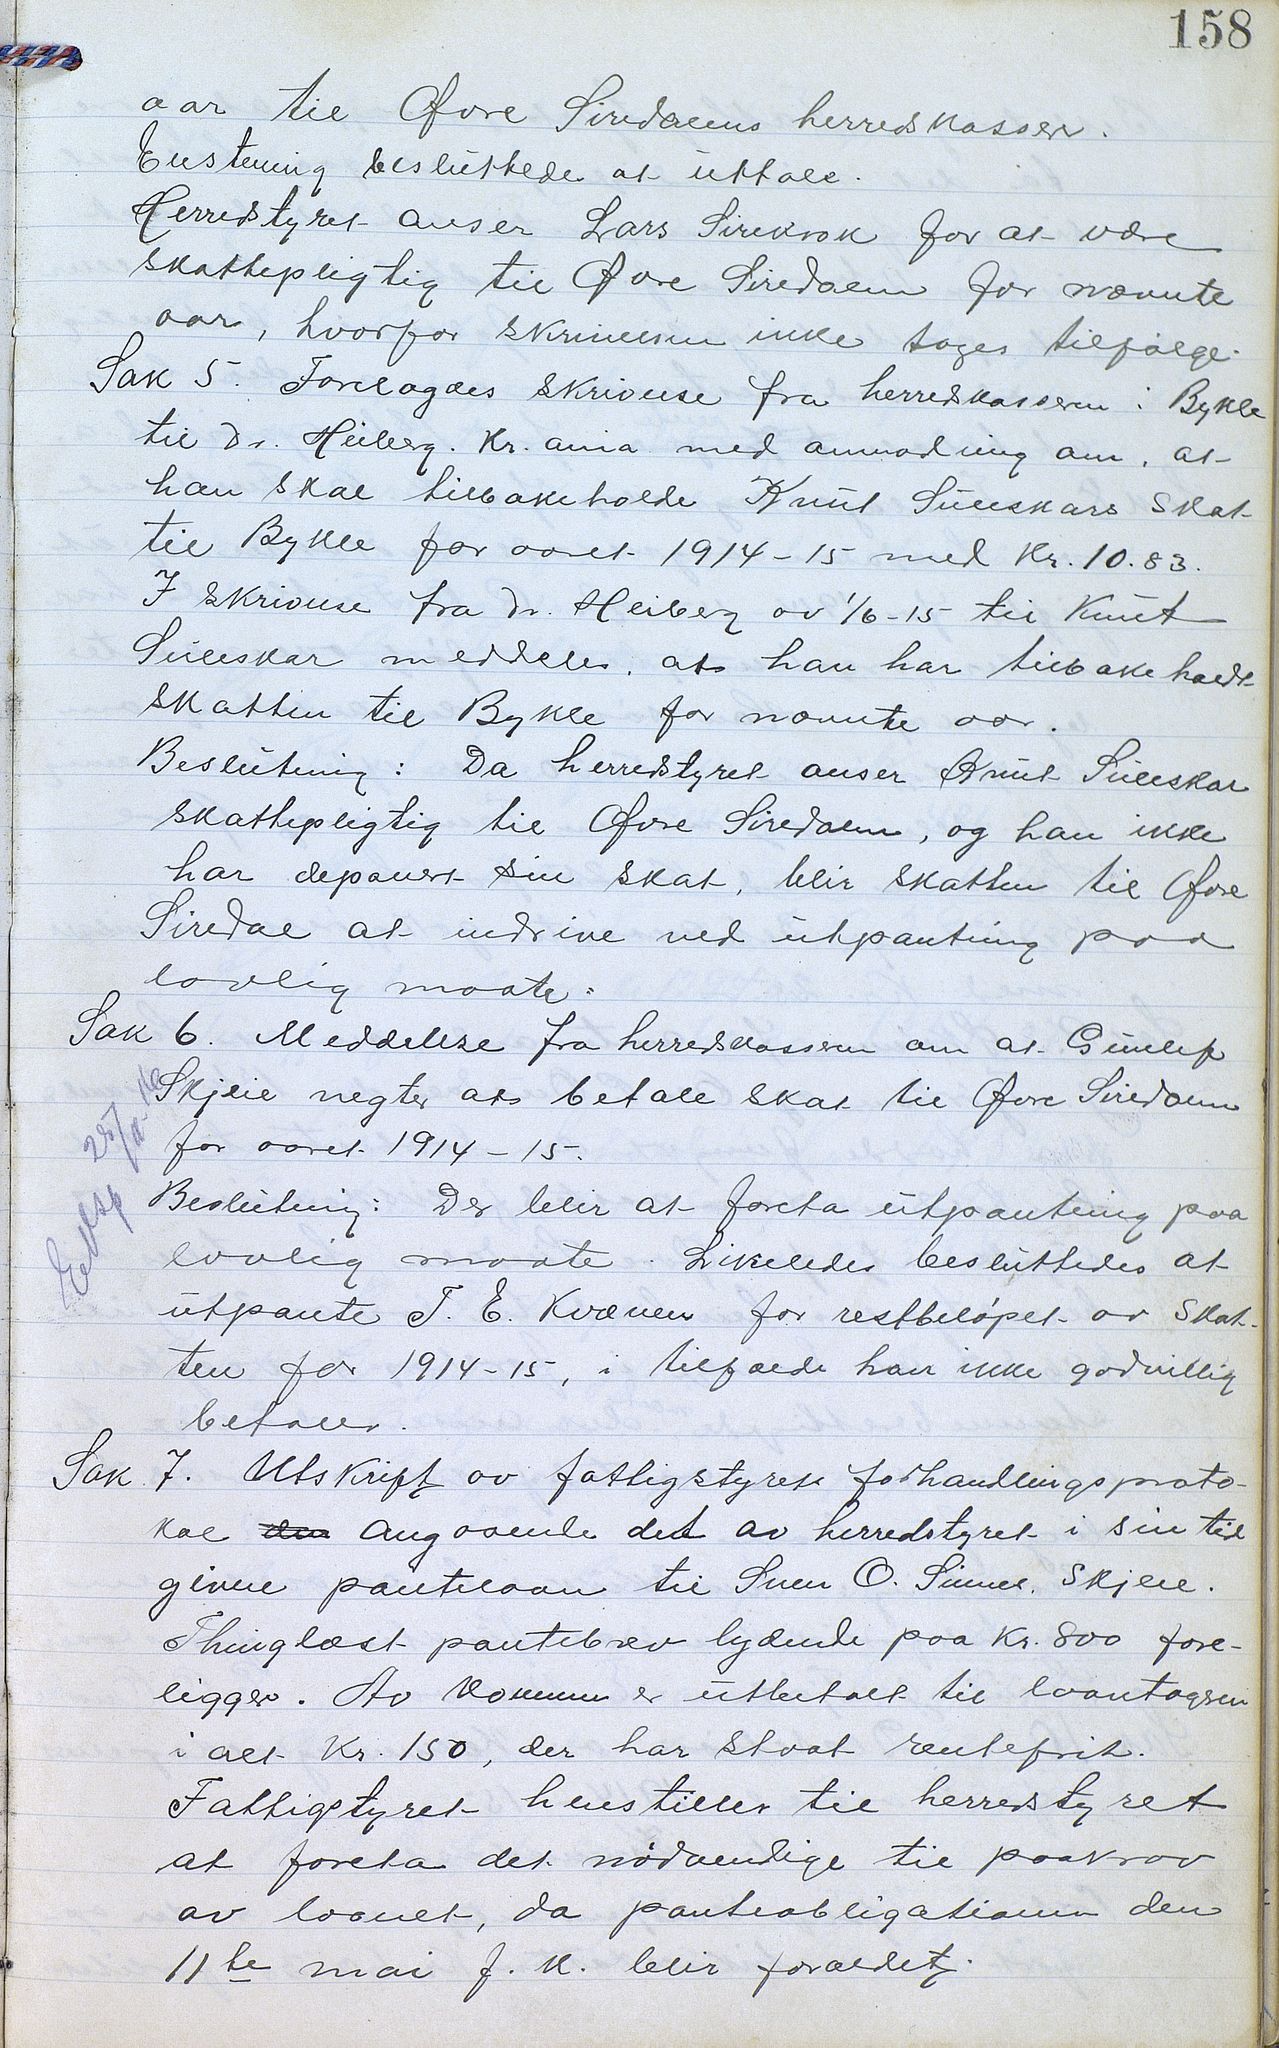 158
aar til Øvre Siredalens herredskasse.
Enstemig besluttedes at uttale.
Herredstyret anser Lars Sirekrok for at være
skattepligtig til Øvre Siredalen for nævnte
aar, hvorfor skrivelsen ikke tages tilfølge.
Sak 5. Forelagdes skrivelse fra herredskasseren i Bykle
til Dr. Heiberg. Kr.ania med anmodning om, at
han skal tilbakeholde Knut Suleskars skat
til Bykle for aaret 1914-15 med Kr. 10.83.
I skrivelse fra Dr. Heiberg av 1/6-15 til Knut
Suleskar meddeles, at han har tilbakeholdt
skatten til Bykle for nævnte aar.
Beslutning: Da herredstyret anser Knut Suleskar
skattepligtig til Øvre Siredalen, og han ikke
har deponert sin skat, blir skatten til Øvre
Siredal at indrive ved utpantning paa
lovlig maate.
Sak 6. Meddelelse fra herredskasseren om at Gunlef
Skjeie negter at betale skat til Øvre Siredalen
for aaret 1914-15.
Beslutning: Der blir at foreta utpantning paa
lovlig maate. Likeledes besluttedes at
utpante T. E. Kvænen for restbeløpet av skat-
ten for 1914-15, i tilfælde han ikke godvillig
betaler.
Sak 7. Utskrift av fattigstyrets forhandlingsproto-
kol den angaaende det av herredstyret i sin tid
givne pantelaan til Sven O. Sinnes, Skjeie.
Thinglæst pantebrev lydende paa Kr. 800 fore-
ligger. Av kommunen er utbetalt til laantageren
i alt Kr. 150, der har staat rentefrit.
Fattigstyret henstiller til herredstyret
at foreta det nødvendige til paakrav
av laanet, da panteobligationen den
11te mai f. k. blir foraeldet.